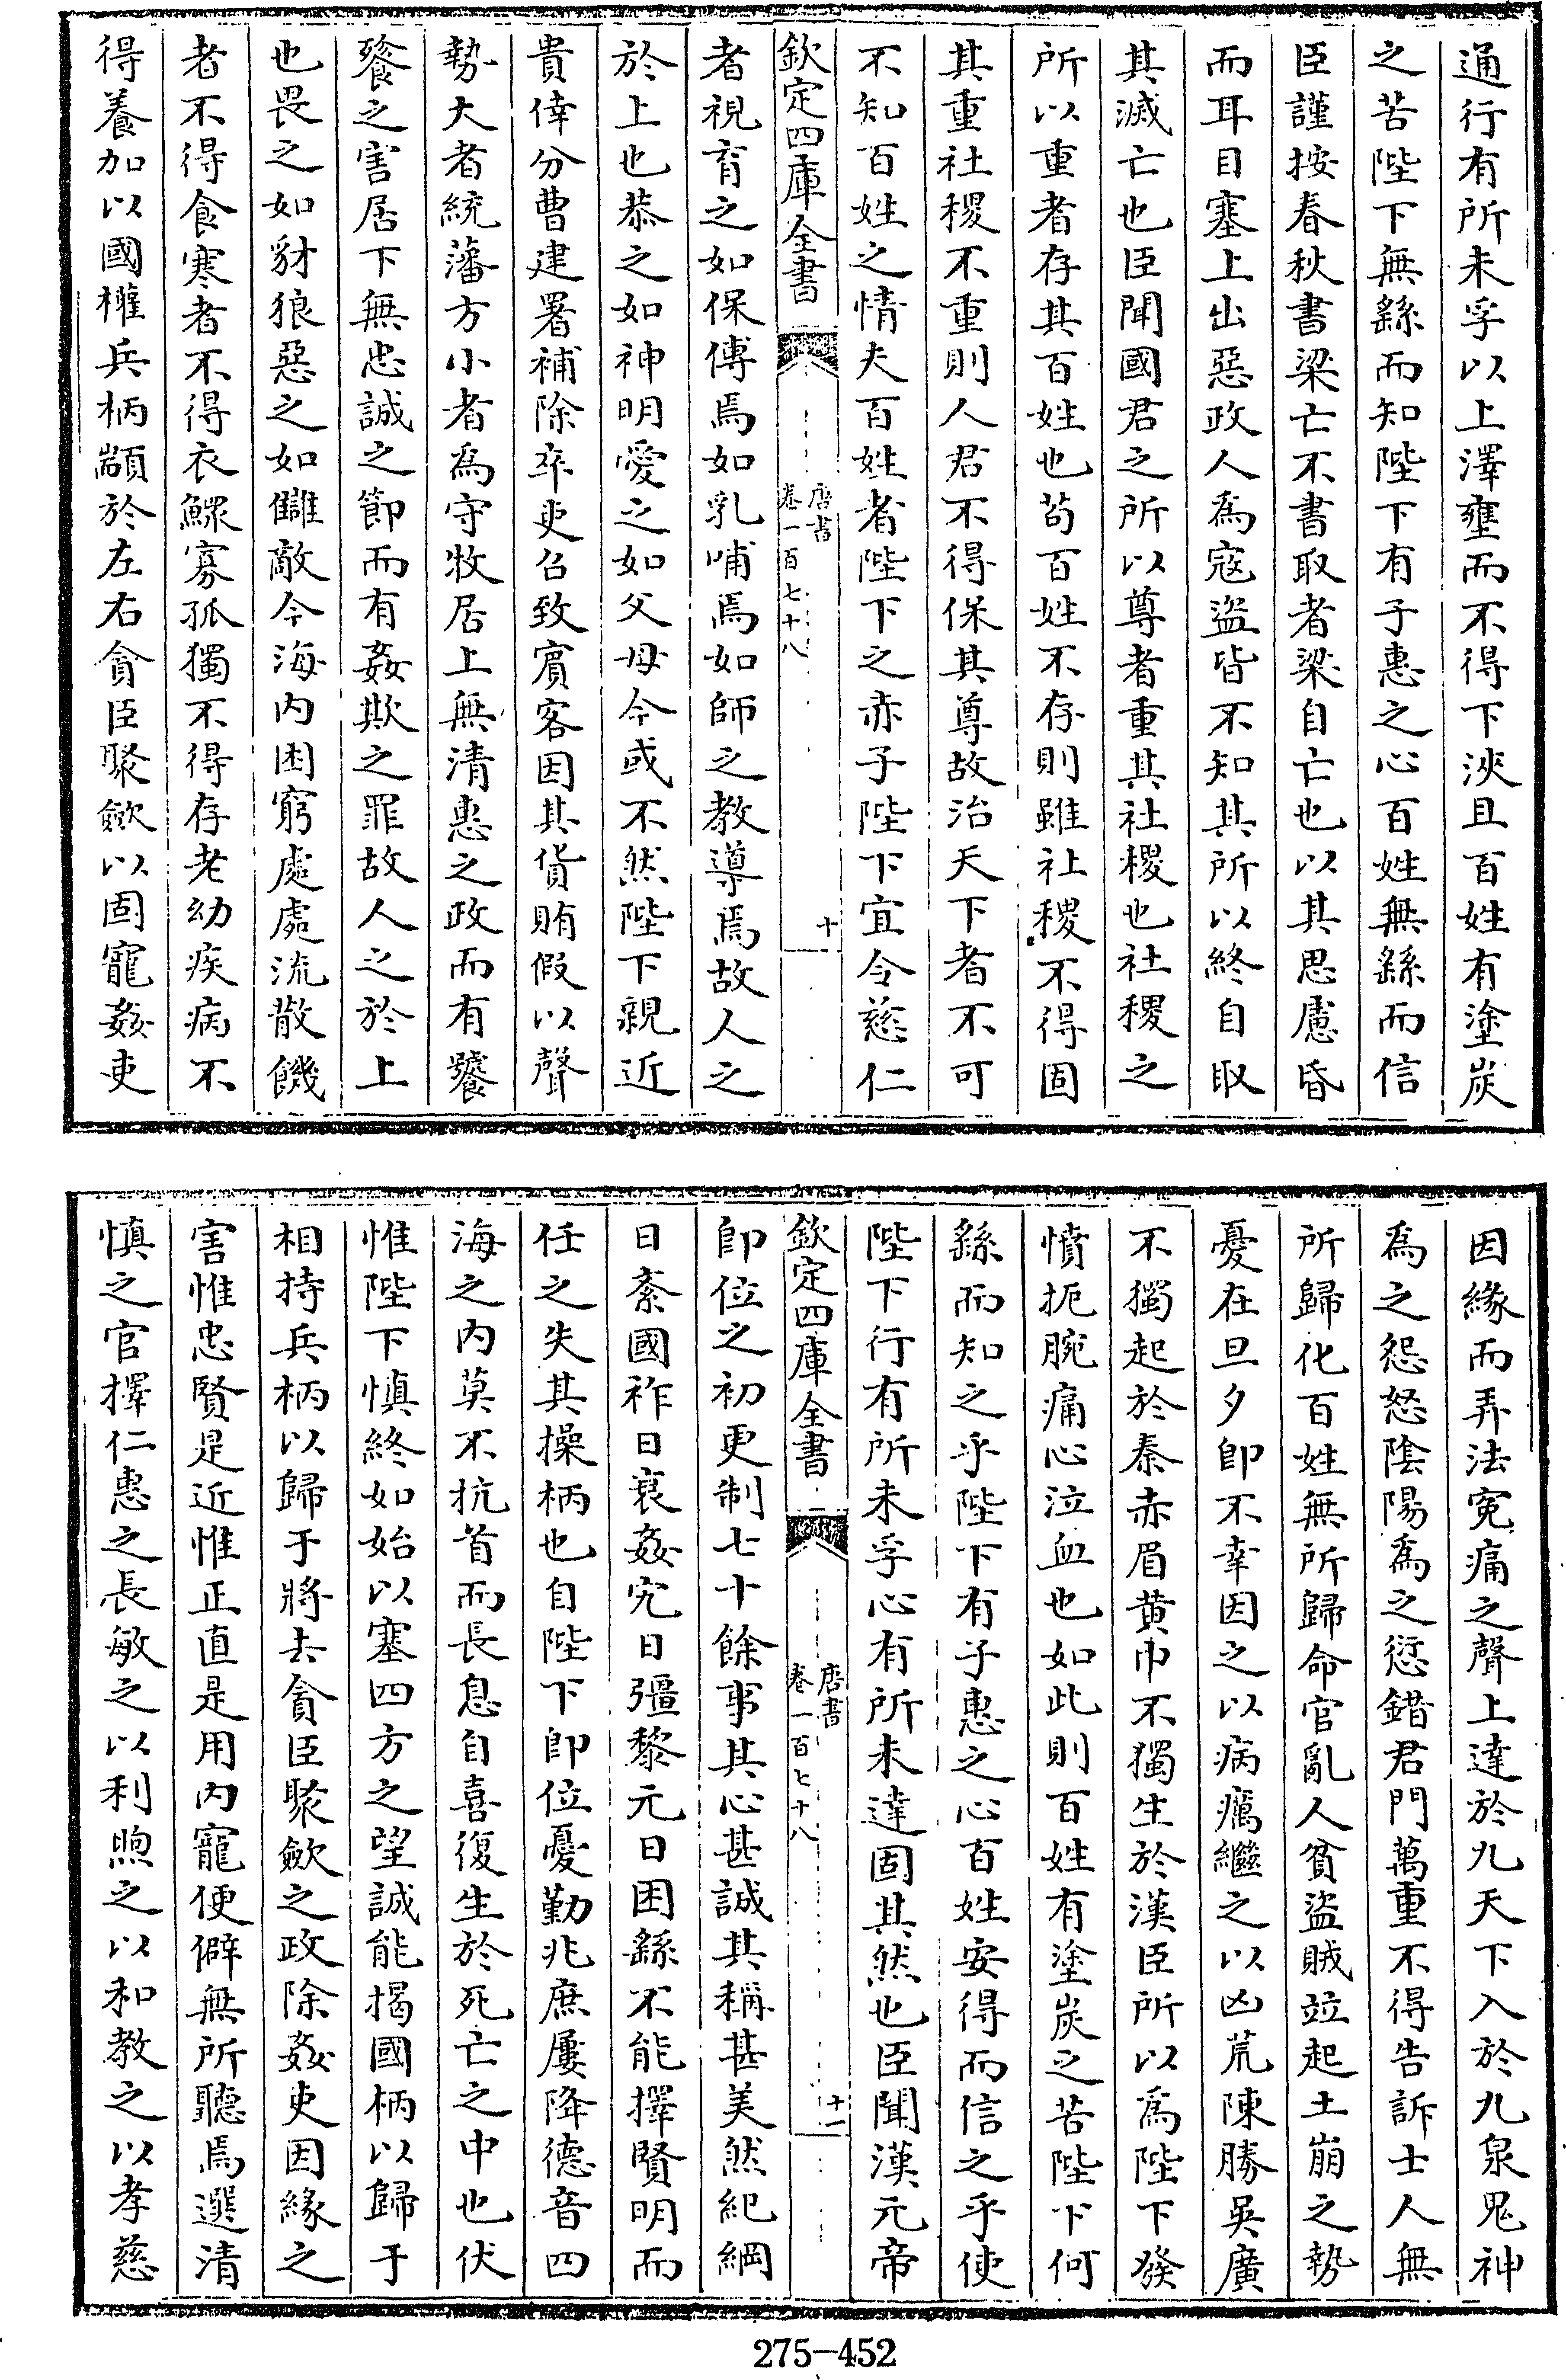 通行有所未孚以上澤壅而不得下浹且百姓有塗炭
之苦陛下無繇而知陛下有子惠之心百姓無繇而信
臣謹按春秋書梁亡不書取者梁自亡也以其思慮昏
而耳目塞上出惡政人為寇盜皆不知其所以終自取
其滅亡也臣聞國君之所以尊者重其社稷也社稷之
所以重者存其百姓也苟百姓不存則雖社稷不得固
其重社稷不重則人君不得保其尊故治天下者不可
不知百姓之情夫百姓者陛下之赤子陛下宜令慈仁
欽定四庫全書
唐書
卷一百七十八
十
者視育之如保傅焉如乳哺焉如師之教導焉故人之
於上也恭之如神明愛之如父母今或不然陛下親近
貴倖分曹建署補除卒吏召致賓客因其貨賄假以聲
勢大者統藩方小者為守牧居上無清惠之政而有饕
餮之害居下無忠誠之節而有姦欺之罪故人之於上
也畏之如豺狼惡之如讎敵今海内困窮處處流散饑
者不得食寒者不得衣鰥寡孤獨不得存老幼疾病不
得養加以國權兵柄顓於左右貪臣聚歛以固寵姦吏
因緣而弄法寃痛之聲上達於九天下入於九泉鬼神
為之怨怒陰陽為之愆錯君門萬重不得告訴士人無
所歸化百姓無所歸命官亂人貧盜賊竝起土崩之勢
憂在旦夕卽不幸因之以病癘繼之以凶荒陳勝吳廣
不獨起於秦赤眉黄巾不獨生於漢臣所以為陛下發
憤扼腕痛心泣血也如此則百姓有塗炭之苦陛下何
繇而知之乎陛下有子惠之心百姓安得而信之乎使
陛下行有所未孚心有所未達固其然也臣聞漢元帝
欽定四庫全書
唐書
卷一百七十八
十一
卽位之初更制七十餘事其心甚誠其稱甚美然紀綱
日紊國祚日衰姦宄日彊黎元日困繇不能擇賢明而
任之失其操柄也自陛下卽位憂勤兆庶屢降德音四
海之内莫不抗首而長息自喜復生於死亡之中也伏
惟陛下慎終如始以塞四方之望誠能揭國柄以歸于
相持兵柄以歸于將去貪臣聚歛之政除姦吏因緣之
害惟忠賢是近惟正直是用内寵便僻無所聽焉選清
慎之官擇仁惠之長敏之以利煦之以和教之以孝慈
275-452